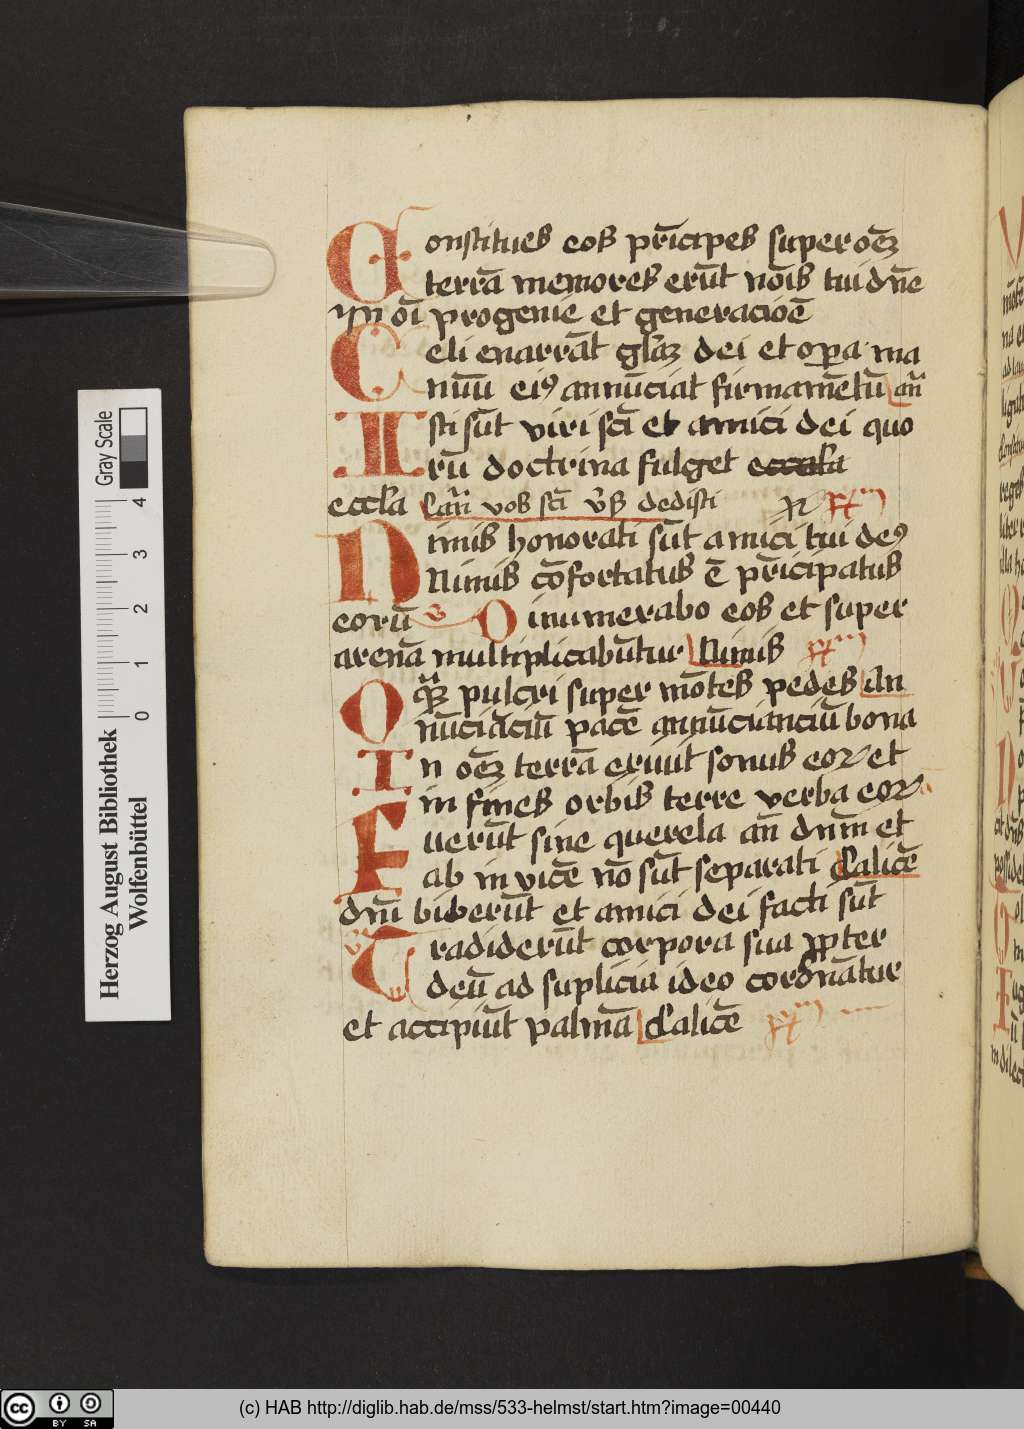 Constitues eos prīcipes super oēȝ
terrā memores erūt noīs tui dn̄e
yn oī progenie et generacioē
Celi enarrāt glāȝ dei et opa ma
nuū eiꝰ annūciat firmamētū an̄
Isti sūt viri scī et amici dei quo
rū doctrina fulget eccl̄a
eccl̄a vos scī dedisti
Nimis honorati sūt amici tui deꝰ
Nimis cōfortatus ē prīcipatus
eorū Dinumerabo eos et super
arenā multiplicabūtur Nimis
O qͣꝫ pulcri super mōtes pedes An
nūciāciū pacē annūcianciū bona
In oēȝ terrā exiuit sonus eoꝝ et
in fines orbis terre verba eoꝝ
Fuerūt sine querela an̄ dnm̄ et
ab in vicē nō sūt separati Calicē
dnī biberūt et amici dei facti sūt
Tradiderūt corpora sua ꝓpter
deū ad suplicia ideo cordnātur
et accipiūt palmā Calicē
Herzog August Bibliothek
Wolfenbüttel
0 1 2 3 4
Gray Scale
cc BY SA
(c) HAB http://diglib.hab.de/mss/533-helmst/start.htm?image=00440